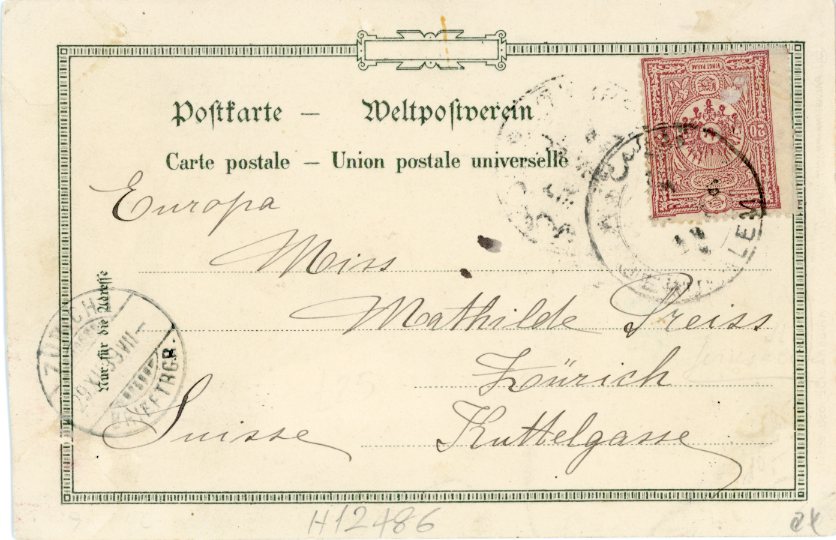 Postkarte — Weltpostverein
Carte postale — Union postale universelle
Europa
Miss
Mathilde Preiss
Zürich
Kuttelgasse
Suisse
Nur für die Adresse
20
ZÜRICH
BRIEFTRGR.
H12486